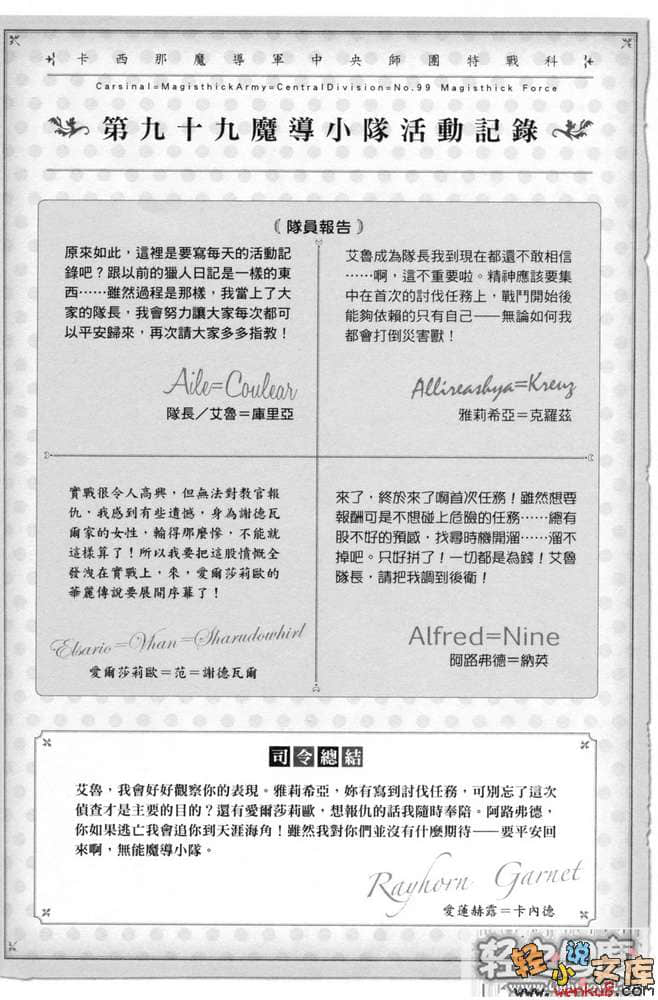 卡西那魔導軍中央師團特戰科
Carsinal=MagisthickArmy=CentralDivision=No.99 Magisthick Force
第九十九魔導小隊活動記錄
《隊員報告》
原來如此，這裡是要寫每天的活動記
錄吧？跟以前的獵人日記是一樣的東
西……雖然過程是那樣，我當上了大
家的隊長，我會努力讓大家每次都可
以平安歸來，再次請大家多多指教！
Aile=Coulear
隊長／艾魯＝庫里亞
艾魯成為隊長我到現在都還不敢相信
……啊，這不重要啦。精神應該要集
中在首次的討伐任務上，戰鬥開始後
能夠依賴的只有自己——無論如何我
都會打倒災害獸！
Allireashya=Kreuz
雅莉希亞＝克羅茲
實戰很令人高興，但無法對教官報
仇，我感到有些遺憾，身為謝德瓦
爾家的女性，輸得那麼慘，不能就
這樣算了！所以我要把這股憤慨全
發洩在實戰上，來，愛爾莎莉歐的
華麗傳說要展開序幕了！
Elsario=Vhan=Sharudowhirl
愛爾莎莉歐＝范＝謝德瓦爾
來了，終於來了啊首次任務！雖然想要
報酬可是不想碰上危險的任務……總有
股不好的預感，找尋時機開溜……溜不
掉吧。只好拼了！一切都是為錢！艾魯
隊長，請把我調到後衛！
Alfred=Nine
阿路弗德＝納英
司令總結
艾魯，我會好好觀察你的表現。雅莉希亞，妳有寫到討伐任務，可別忘了這次
偵查才是主要的目的？還有愛爾莎莉歐，想報仇的話我隨時奉陪。阿路弗德，
你如果逃亡我會追你到天涯海角！雖然我對你們並沒有什麼期待——要平安回
來啊，無能魔導小隊。
Rayhorn Garnet
愛蓮赫露＝卡內德
轻小说文库
www.wenku8.com